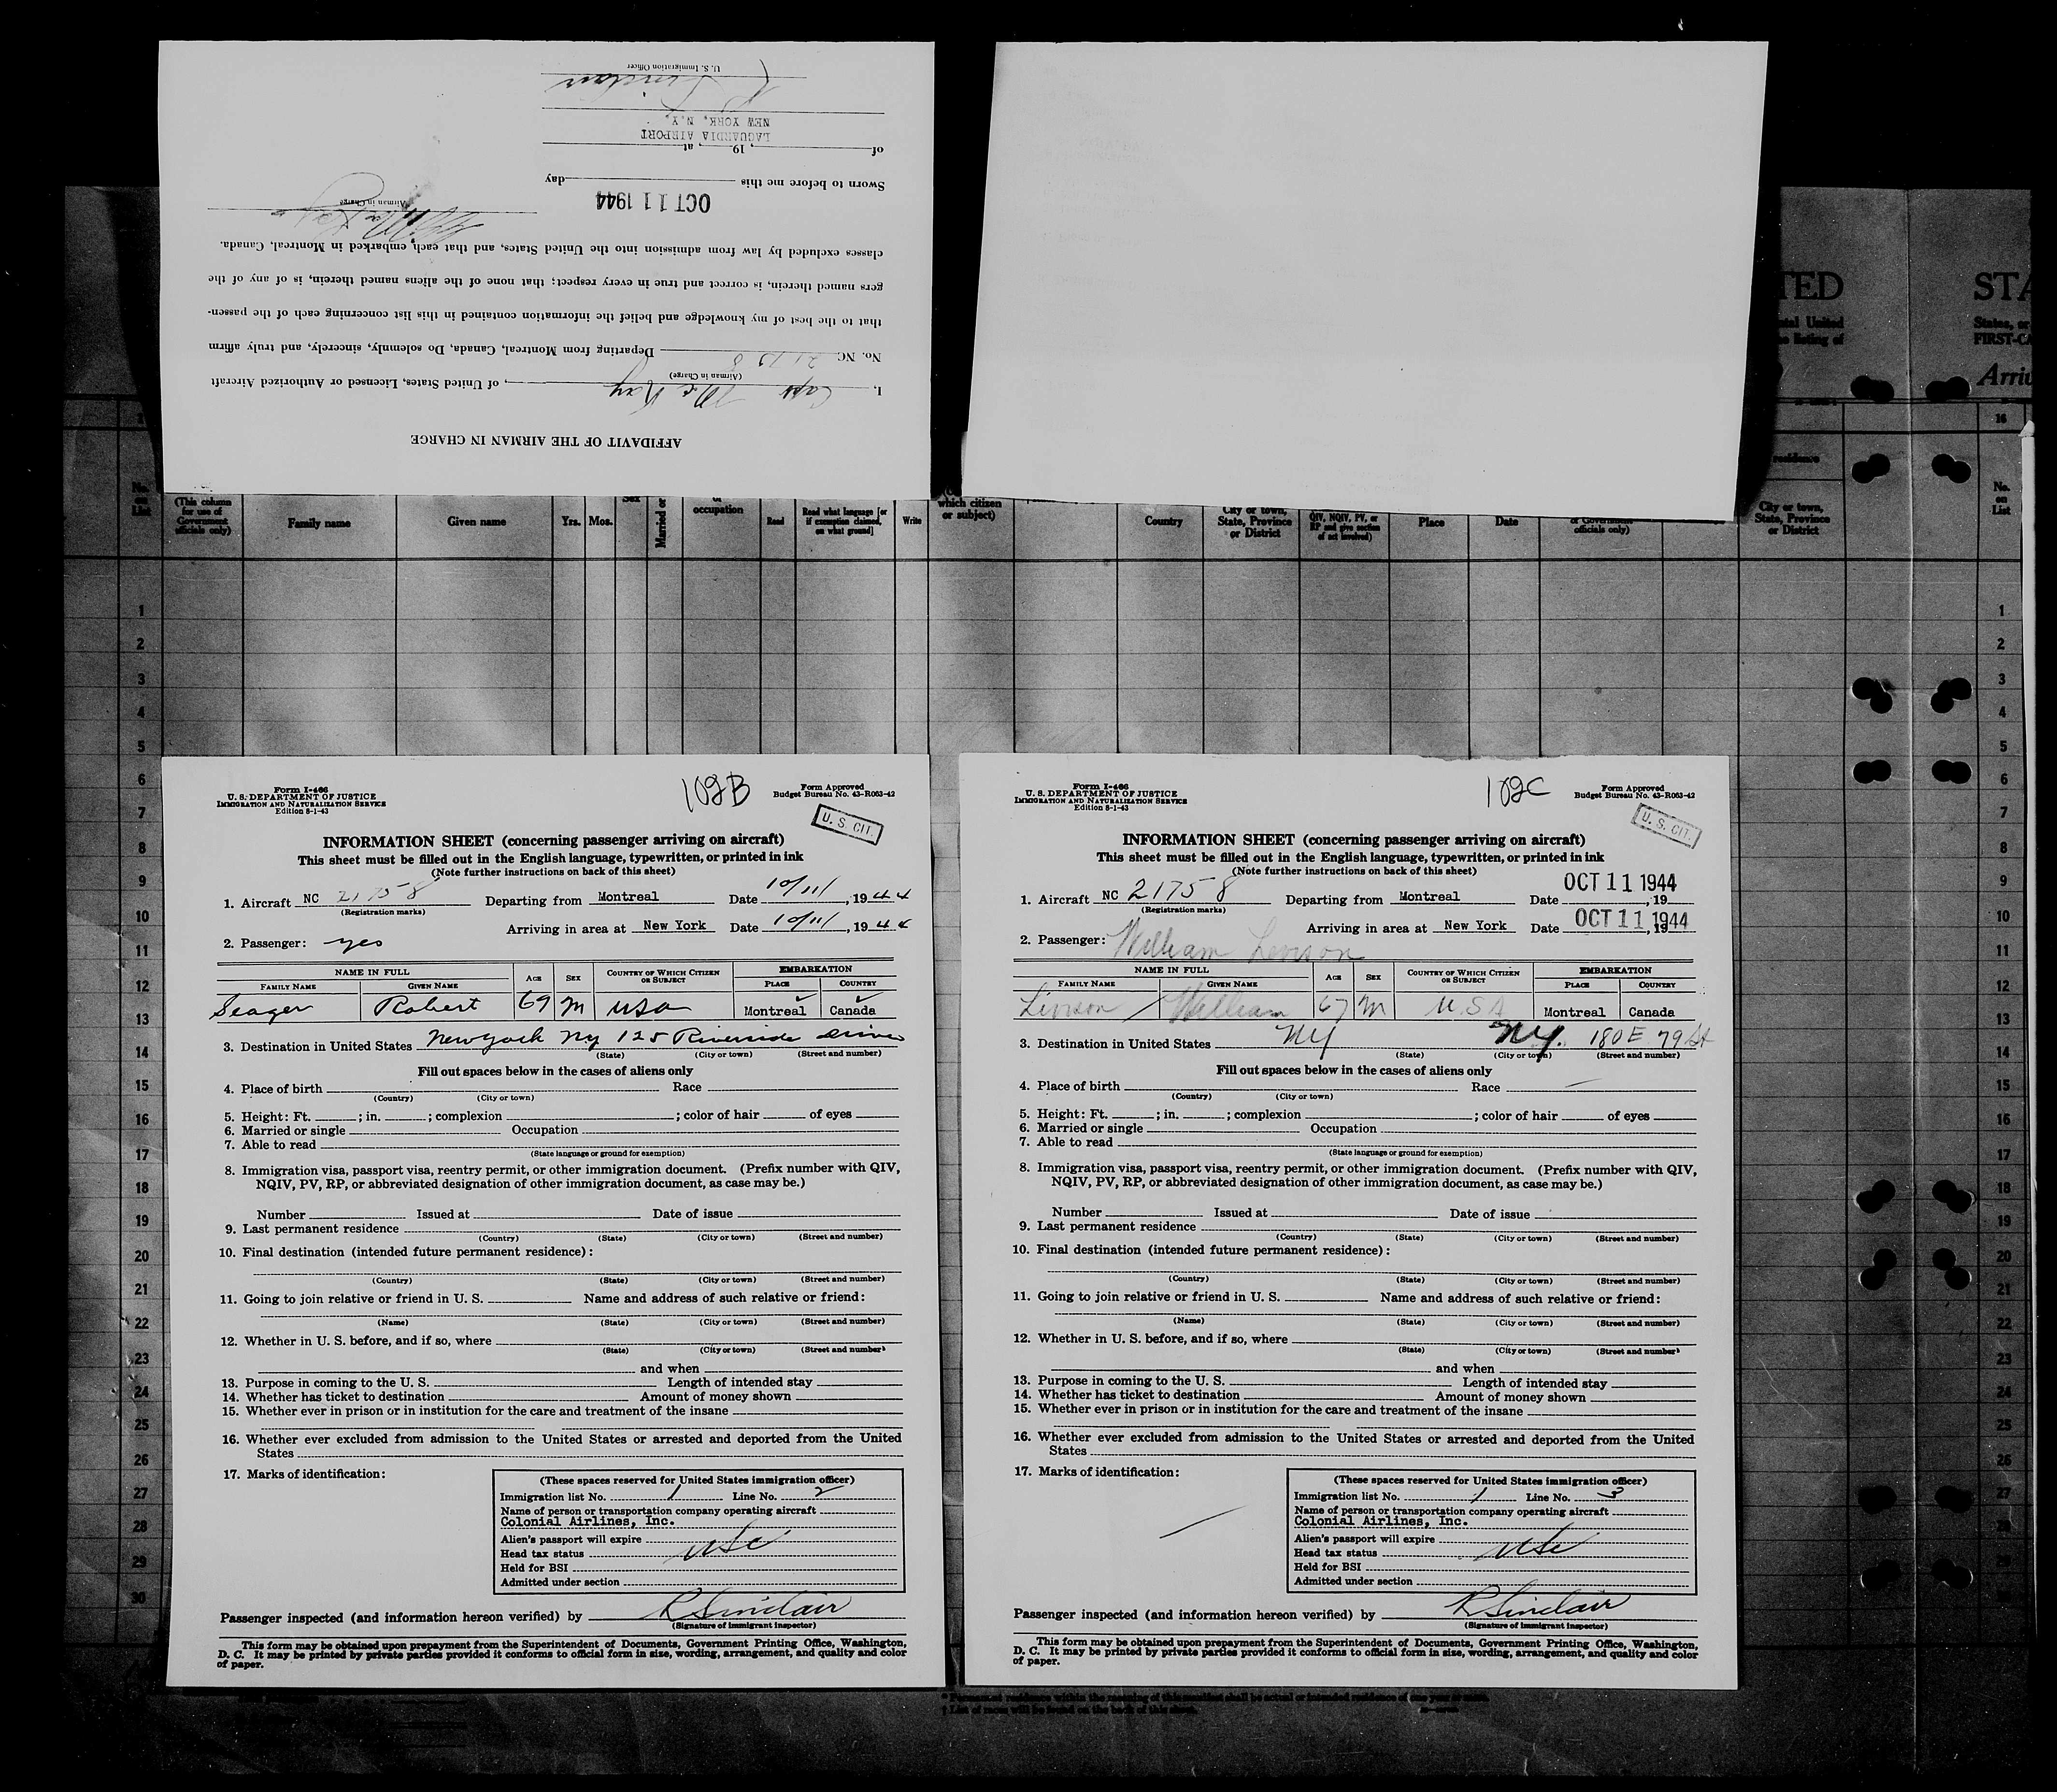 AFFIDAVIT OF THE AIRMAN IN CHARGE
I, Capt McKay, of United States, Licensed or Authorized Aircraft
(Airman in Charge)
No. NC 21758 Departing from Montreal, Canada, Do solemnly, sincerely, and truly affirm
that to the best of my knowledge and belief the information contained in this list concerning each of the passen-
gers named therein, is correct and true in every respect; that none of the aliens named therein, is of any of the
classes excluded by law from admission into the United States, and that each embarked in Montreal, Canada.
Airman in Charge
OCT 11 1944
Sworn to before me this day
of , 19 , at
LAGUARDIA AIRPORT
NEW YORK, N.Y.
R Sinclair
U. S. Immigration Officer
TED
STA
FIRST-CA
Arriv
16
residence
No. on List
(This column for use of Government officials only)
Family name
Given name
Yrs.
Mos.
Sex
Married or
occupation
Read
Read what language [or if exemption claimed, on what ground]
Write
which citizen or subject)
Country
City or town, State, Province or District
QIV, NQIV, PV, or RP and give section of act involved)
Place
Date
or Government officials only)
City or town, State, Province or District
No. on List
1
2
3
4
5
6
7
8
9
10
11
12
13
14
15
16
17
18
19
20
21
22
23
24
25
26
27
28
29
30
Form I-466
U. S. DEPARTMENT OF JUSTICE
IMMIGRATION AND NATURALIZATION SERVICE
Edition 8-1-43
102B
Form Approved
Budget Bureau No. 43-R063-42
U. S. CIT.
INFORMATION SHEET (concerning passenger arriving on aircraft)
This sheet must be filled out in the English language, typewritten, or printed in ink
(Note further instructions on back of this sheet)
1. Aircraft NC 21758 Departing from Montreal Date 10/11/, 1944
(Registration marks)
Arriving in area at New York Date 10/11/, 1944
2. Passenger: yes
NAME IN FULL AGE SEX COUNTRY OF WHICH CITIZEN OR SUBJECT EMBARKATION
FAMILY NAME GIVEN NAME PLACE COUNTRY
Seager Robert 69 M USA Montreal Canada
3. Destination in United States New York NY 125 Riverside Drive
(State) (City or town) (Street and number)
Fill out spaces below in the cases of aliens only
4. Place of birth Race
(Country) (City or town)
5. Height: Ft. ; in. ; complexion ; color of hair of eyes
6. Married or single Occupation
7. Able to read
(State language or ground for exemption)
8. Immigration visa, passport visa, reentry permit, or other immigration document. (Prefix number with QIV,
NQIV, PV, RP, or abbreviated designation of other immigration document, as case may be.)
Number Issued at Date of issue
9. Last permanent residence
(Country) (State) (City or town) (Street and number)
10. Final destination (intended future permanent residence):
(Country) (State) (City or town) (Street and number)
11. Going to join relative or friend in U. S. Name and address of such relative or friend:
(Name) (State) (City or town) (Street and number)
12. Whether in U. S. before, and if so, where
(State) (City or town) (Street and number)
and when
13. Purpose in coming to the U. S. Length of intended stay
14. Whether has ticket to destination Amount of money shown
15. Whether ever in prison or in institution for the care and treatment of the insane
16. Whether ever excluded from admission to the United States or arrested and deported from the United
States
17. Marks of identification:
(These spaces reserved for United States immigration officer)
Immigration list No. 1 Line No. 2
Name of person or transportation company operating aircraft
Colonial Airlines, Inc.
Alien's passport will expire
Head tax status USC
Held for BSI
Admitted under section
Passenger inspected (and information hereon verified) by R Sinclair
(Signature of immigrant inspector)
This form may be obtained upon prepayment from the Superintendent of Documents, Government Printing Office, Washington,
D. C. It may be printed by private parties provided it conforms to official form in size, wording, arrangement, and quality and color
of paper.
Form I-466
U. S. DEPARTMENT OF JUSTICE
IMMIGRATION AND NATURALIZATION SERVICE
Edition 8-1-43
102C
Form Approved
Budget Bureau No. 43-R063-42
U. S. CIT.
INFORMATION SHEET (concerning passenger arriving on aircraft)
This sheet must be filled out in the English language, typewritten, or printed in ink
(Note further instructions on back of this sheet)
1. Aircraft NC 21758 Departing from Montreal Date OCT 11 1944, 19
(Registration marks)
Arriving in area at New York Date OCT 11 1944, 19
2. Passenger: William Levison
NAME IN FULL AGE SEX COUNTRY OF WHICH CITIZEN OR SUBJECT EMBARKATION
FAMILY NAME GIVEN NAME PLACE COUNTRY
Livison William 67 M U.S.A Montreal Canada
3. Destination in United States NY NY. 180 E 79 St
(State) (City or town) (Street and number)
Fill out spaces below in the cases of aliens only
4. Place of birth Race
(Country) (City or town)
5. Height: Ft. ; in. ; complexion ; color of hair of eyes
6. Married or single Occupation
7. Able to read
(State language or ground for exemption)
8. Immigration visa, passport visa, reentry permit, or other immigration document. (Prefix number with QIV,
NQIV, PV, RP, or abbreviated designation of other immigration document, as case may be.)
Number Issued at Date of issue
9. Last permanent residence
(Country) (State) (City or town) (Street and number)
10. Final destination (intended future permanent residence):
(Country) (State) (City or town) (Street and number)
11. Going to join relative or friend in U. S. Name and address of such relative or friend:
(Name) (State) (City or town) (Street and number)
12. Whether in U. S. before, and if so, where
(State) (City or town) (Street and number)
and when
13. Purpose in coming to the U. S. Length of intended stay
14. Whether has ticket to destination Amount of money shown
15. Whether ever in prison or in institution for the care and treatment of the insane
16. Whether ever excluded from admission to the United States or arrested and deported from the United
States
17. Marks of identification:
(These spaces reserved for United States immigration officer)
Immigration list No. 1 Line No. 3
Name of person or transportation company operating aircraft
Colonial Airlines, Inc.
Alien's passport will expire
Head tax status USC
Held for BSI
Admitted under section
Passenger inspected (and information hereon verified) by R Sinclair
(Signature of immigrant inspector)
This form may be obtained upon prepayment from the Superintendent of Documents, Government Printing Office, Washington,
D. C. It may be printed by private parties provided it conforms to official form in size, wording, arrangement, and quality and color
of paper.
* Permanent residence within the meaning of this manifest shall be actual or intended residence of one year or more.
† List of races will be found on the back of this sheet.